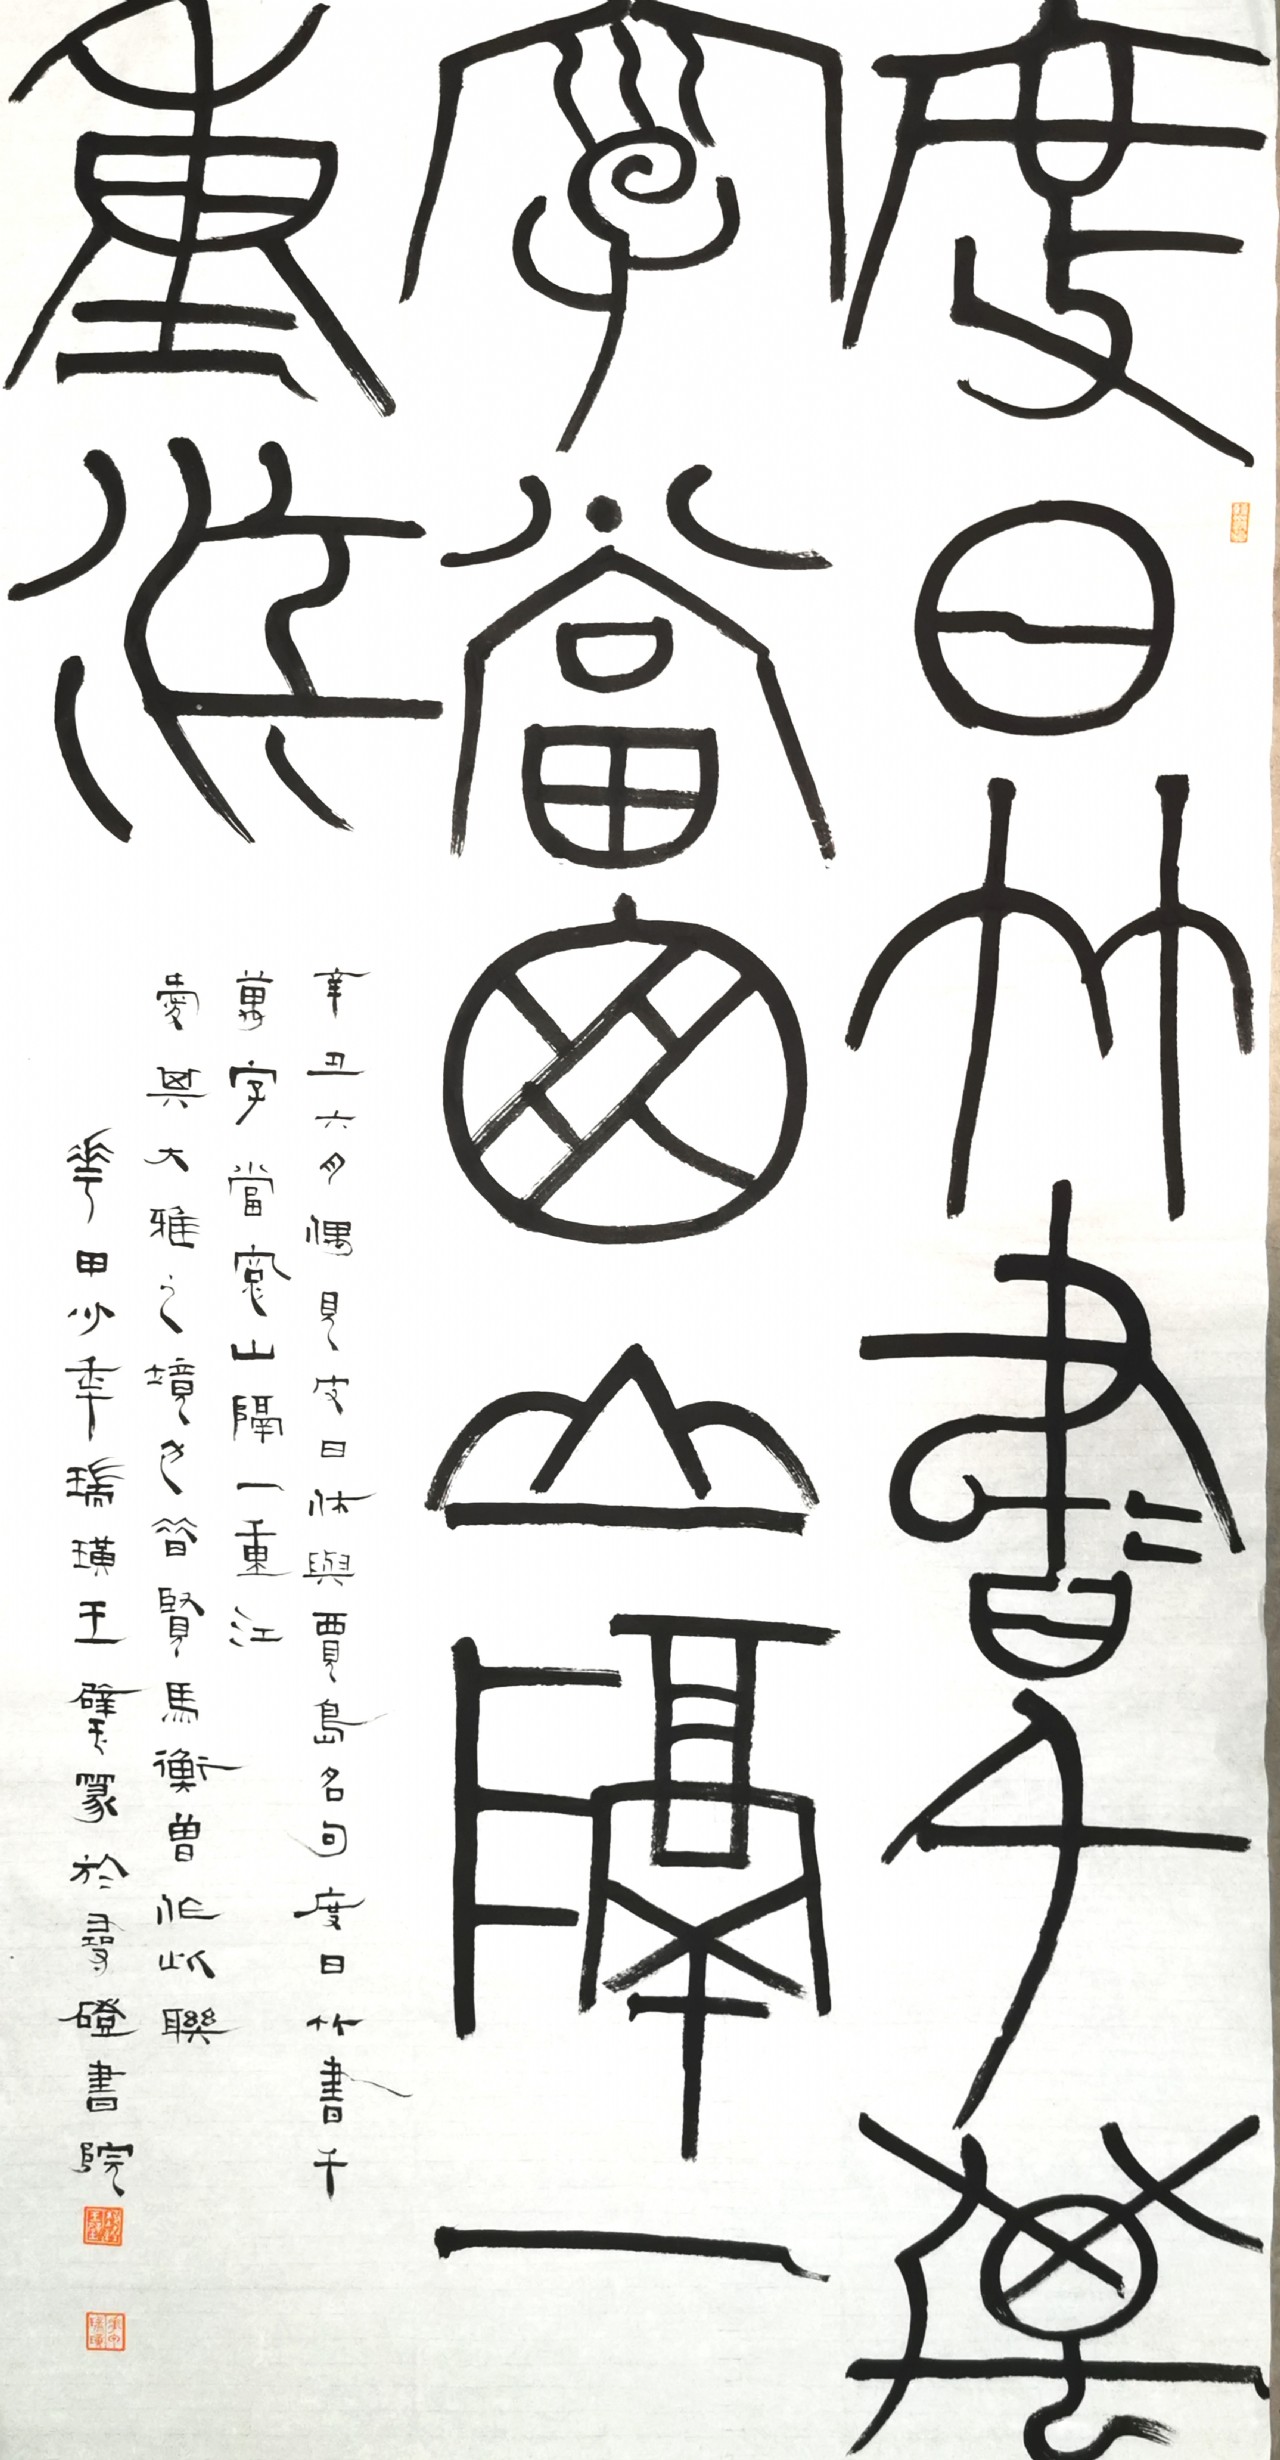 度日竹書千萬
字當窗山隔一
重江
辛丑六月偶見皮日休與賈島名句度日竹書千
萬字當窗山隔一重江
愛其大雅之境也昔賢馬衡曾作此聯
華甲少年瑞璜王璧篆於尋磴書院